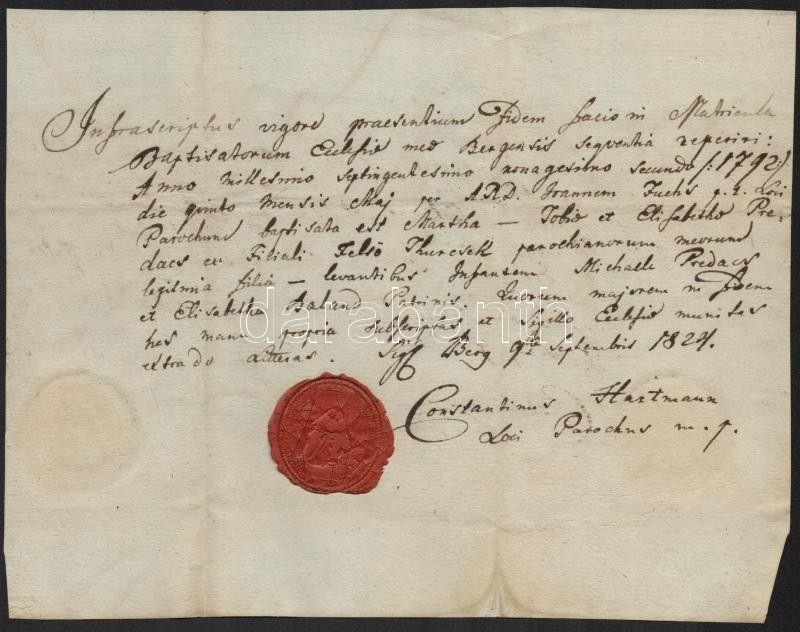 Infrascriptus vigore praesentium Fidem facio in Matricula
Baptisatorum Eclesiæ meæ Bergensis seqventia reperiri:
Anno millesimo septingentesimo nonagesimo secundo /:1792:/
die qvinto mensis Maj per A.R.D. Joannem Fuchs q. t. Loci
Parochum baptisata est Martha — Tobiæ et Elisabethæ Pre-
dacs ex Filiali Felsö Thurcsek parochianorum meorum
legitima filia — levantibus Infantem Michaele Predacs
et Elisabetha Patrinis. Quorum majorem in fidem
has manu propria subscriptas et Sigillo Eclesiæ munitas
extrado Litteras. Sig. Berg 9a Septembris 1824.
Constantinus Hartmann
Loci Parochus m. p.
darabanth